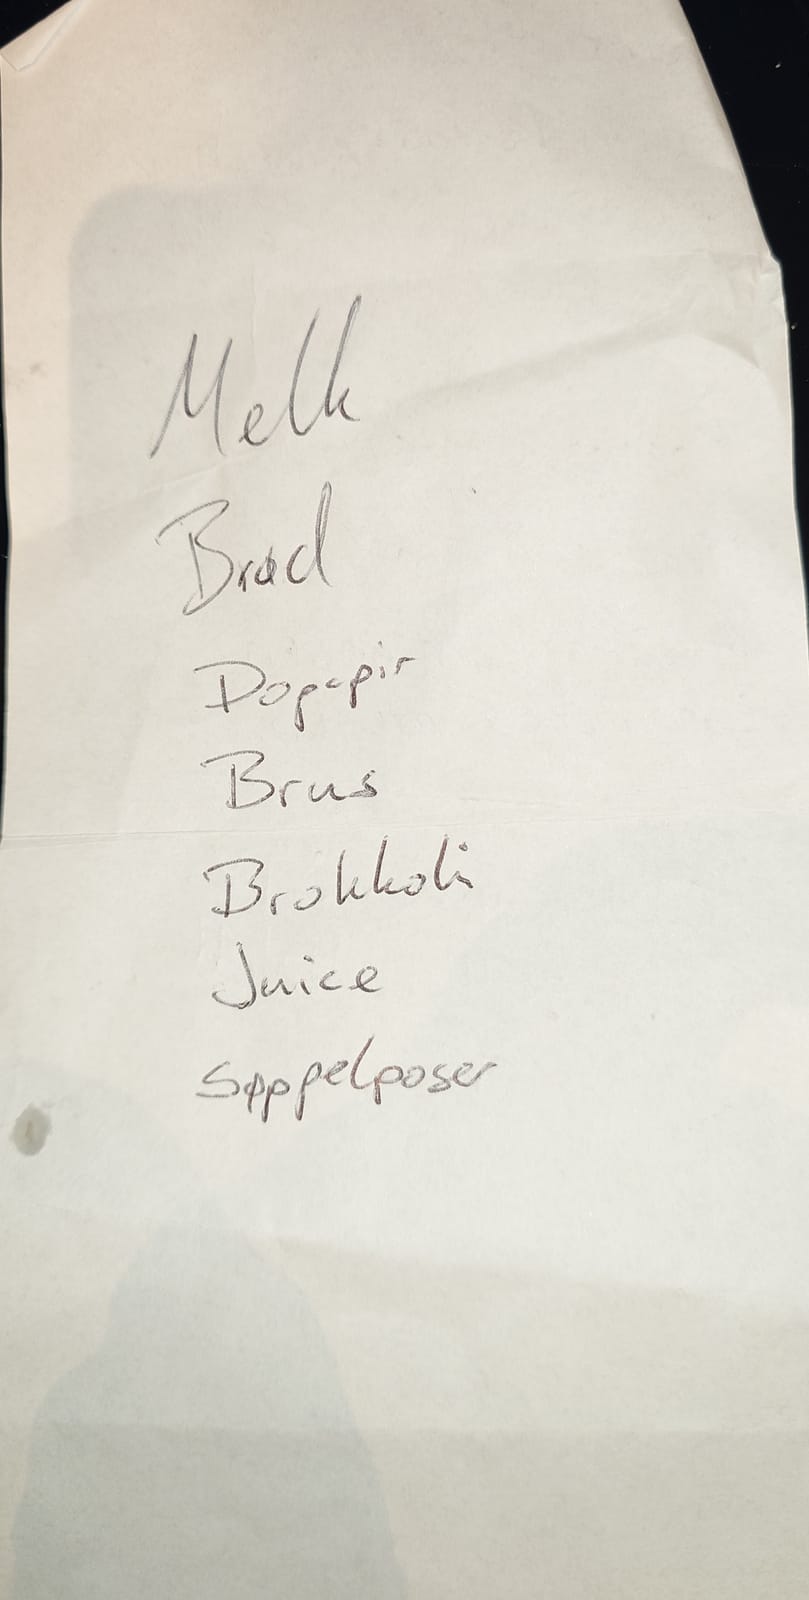 Melk
Brød
Dopapir
Brus
Brokkoli
Juice
Søppelposer